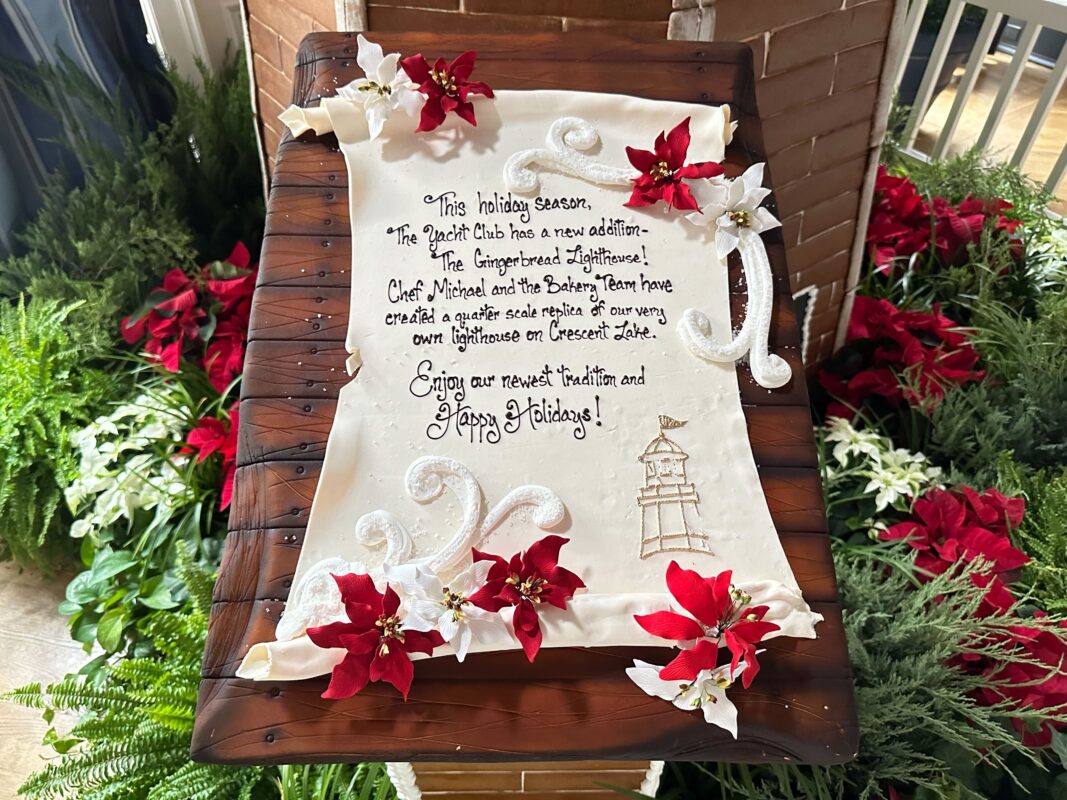 This holiday season,
The Yacht Club has a new addition-
The Gingerbread Lighthouse!
Chef Michael and the Bakery Team have
created a quarter scale replica of our very
own lighthouse on Crescent Lake.
Enjoy our newest tradition and
Happy Holidays!